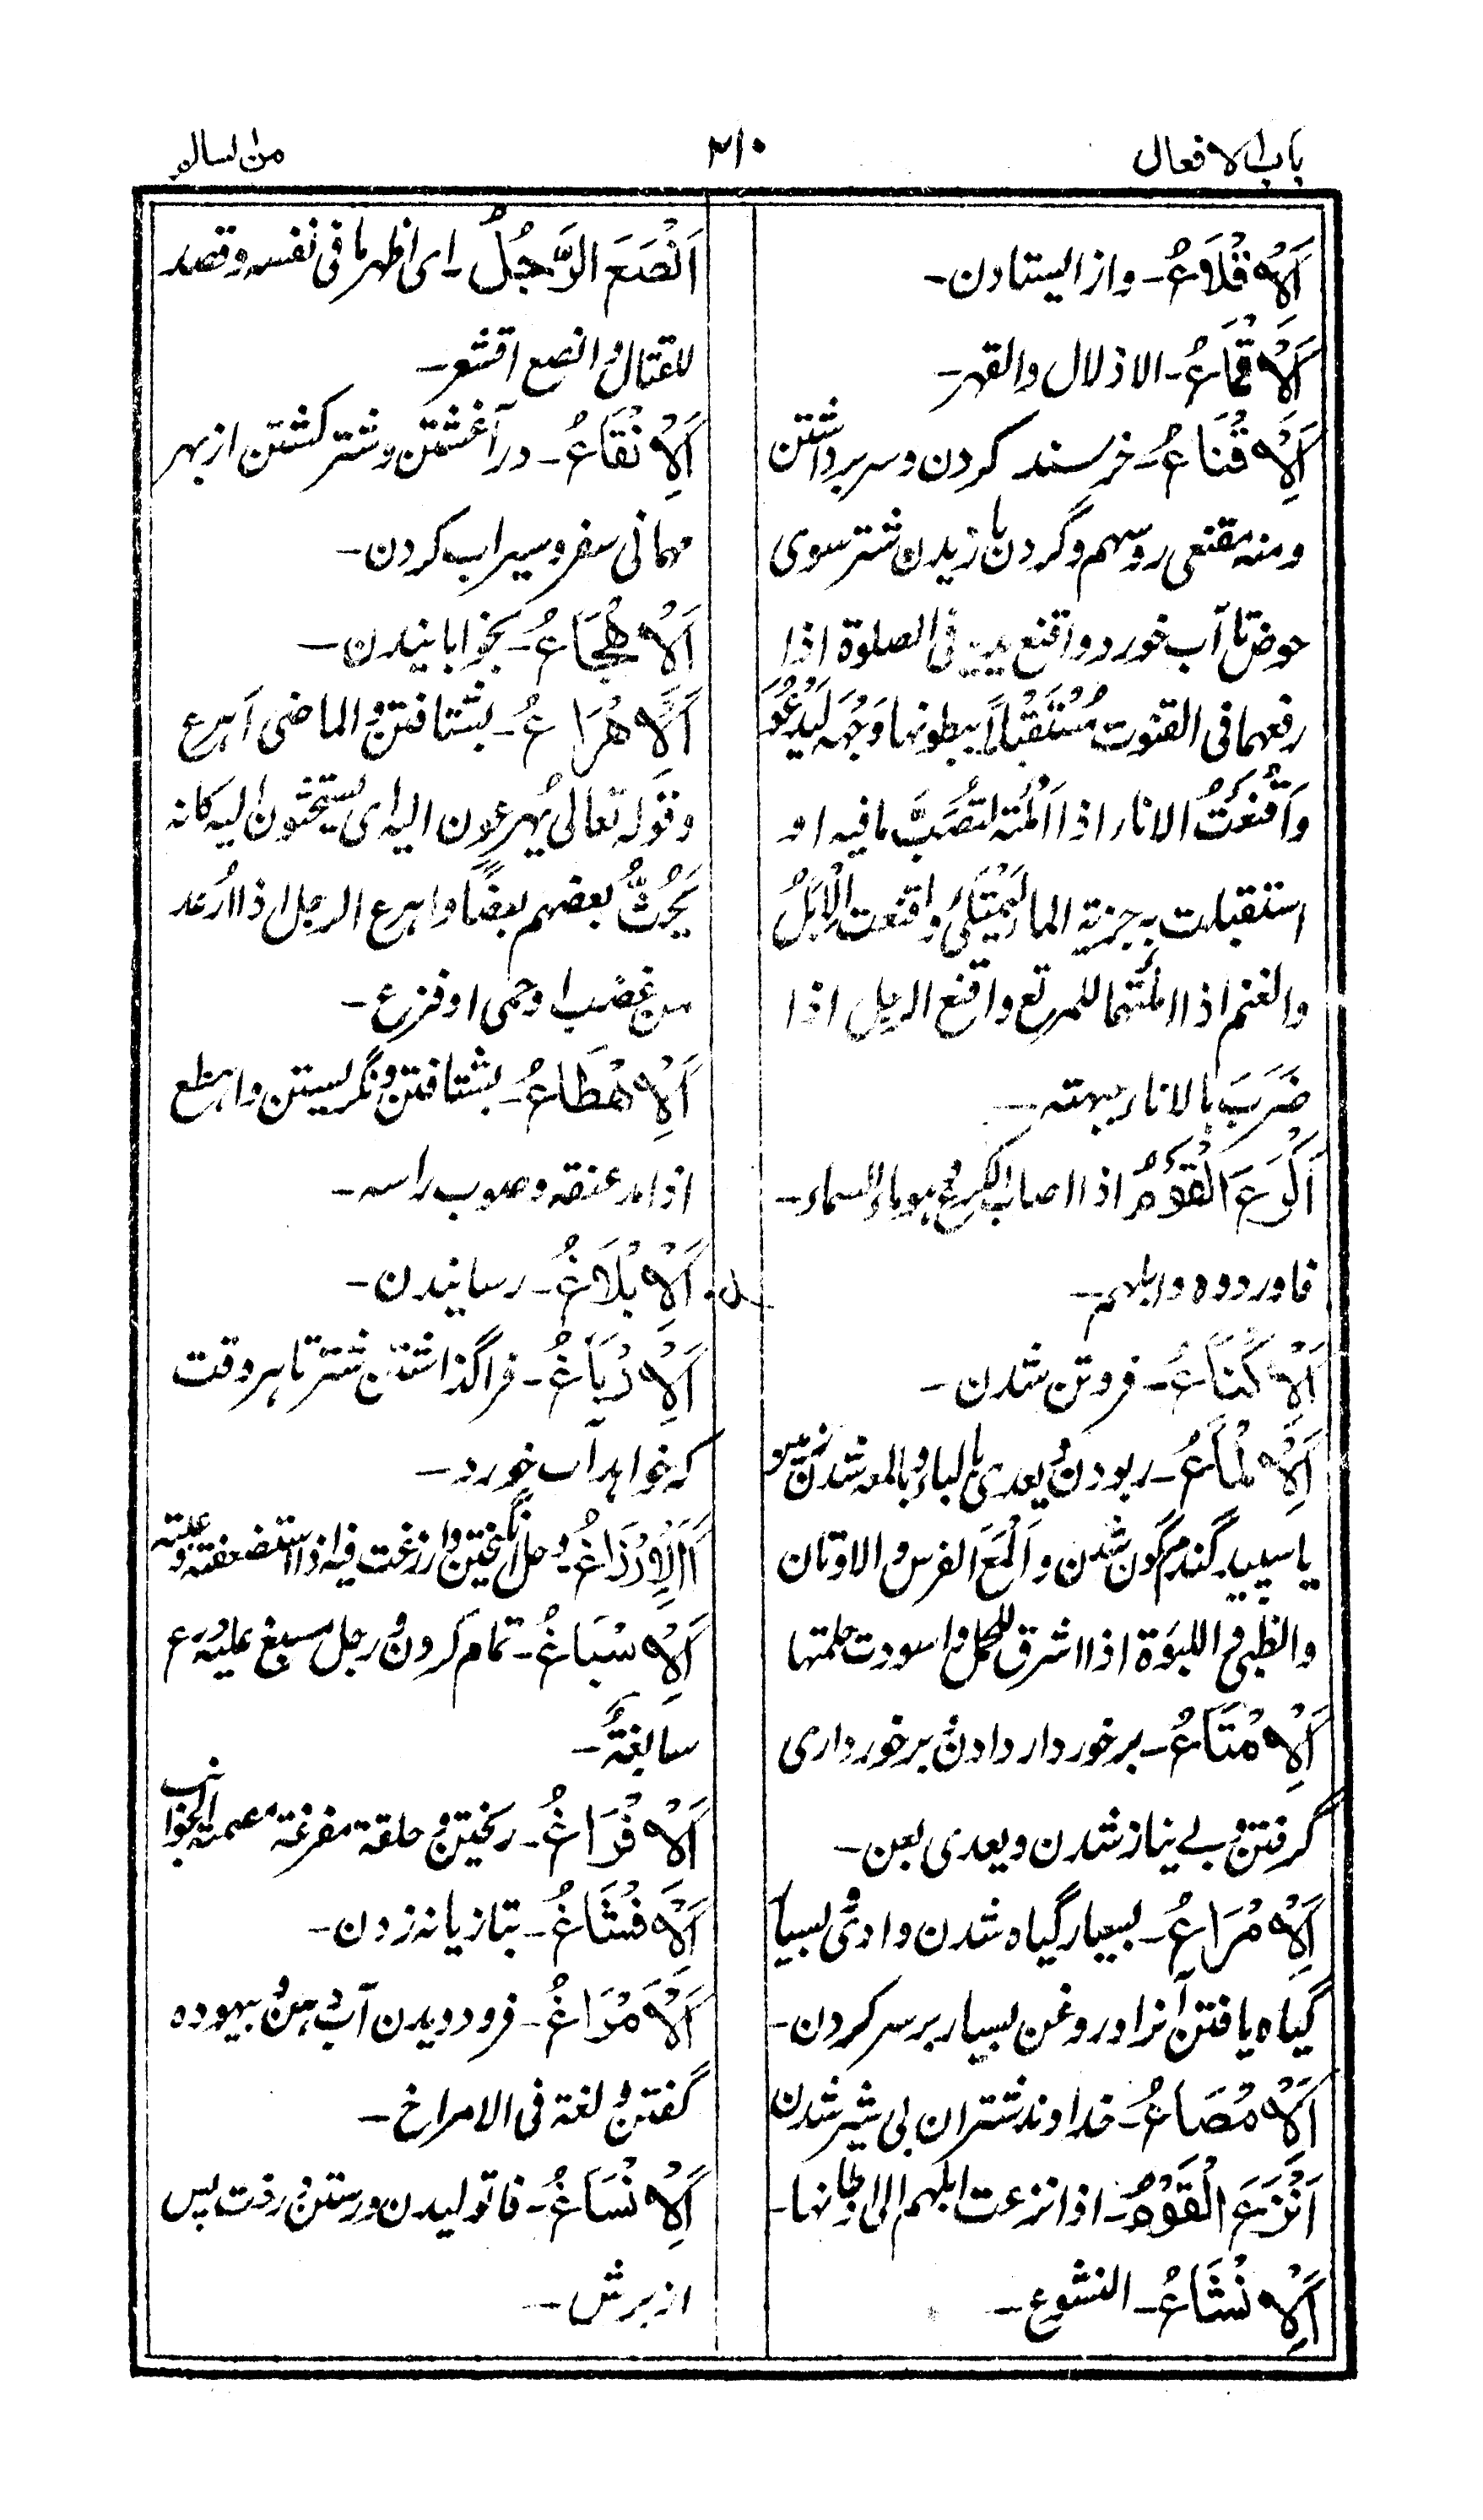 باب الافعال
۲۱۰
من السالم
اَلْاِقْلَاعُ۔ واز ایستادن۔
اَلْاِقْمَاعُ۔ الاذلال والقهر۔
اَلْاِقْنَاعُ۔ خرسند کردن و سر برداشتن
ومنه مقنعی رؤسهم و گردن یازیدن شتر سوی
حوض تا آب خورد و اقنع یدیه فی الصلوة اذا
رفعهما فی القنوت مُسْتَقْبِلًا ببطونهما وَجْهَه لِیَدْعُوَ
وَاَقْنَعْتُ الاناء اذا اَمَلْتَه لتصُبَّ ما فیه او
استقبلت به جریة الماء لِیَمْتَلِئَ و اقنعت الْاِبِلُ
والغنم اذا املتهما للمرتع و اقنع الرجل اذا
ضَرَبَ بالاناء جبهته۔
اَکْرَعَ الْقَوْمُ اذا اصابوا الکرع وهو ماء السماء۔
فاوردوه و ابلهم۔
اَلْاِکْنَاعُ۔ فروتن شدن۔
اَلْاِلْمَاعُ۔ ربودن و یعدی بالباء و بالمعه شدن زمین
یا سپید گندم گون شدن و اَلْمَعَ الفرس و الاوتان
والظبی و اللبوَة اذا اشرق للحمل و اسودت حلمتها
اَلْاِمْتَاعُ۔ برخوردار دادن و برخورداری
گرفتن و بے نیاز شدن و یعدی بعن۔
اَلْاِمْرَاعُ۔ بسیار گیاه شدن وادی و بسیا
گیاه یافتن آنرا و روغن بسیار بر سر کردن۔
اَلْاِمْصَاعُ۔ خداوند شتران بی شیر شدن
اَنْزَعَ الْقَوْمُ۔ اذا نزعت ابلهم الی اوطانها۔
اَلْاِنْشَاعُ۔ النشوع۔
اَنْصَعَ الرَّجُلُ۔ ای اظهر ما فی نفسه و قصد
للقتال و انصع اقشعر۔
اَلْاِنْقَاعُ۔ در آغشتن و شتر کشتن از بهر
مهمانی سفر و سیراب کردن۔
اَلْاِهْجَاعُ۔ بخوابانیدن۔
اَلْاِهْرَاعُ۔ بشتافتن و الماضی اُهرع
وقوله تعالی یُهرعون الیه ای یستحثون الیه کانه
یَحُثُّ بعضهم بعضًا و اهرع الرجل اذا اُرعد
من غضب او حمی او فزع۔
اَلْاِهْطَاعُ۔ بشتافتن و نگریستن و اهطع
اذا مد عنقه و صوب راسه۔
غ
اَلْاِبْلَاغُ۔ رسانیدن۔
اَلْاِرْبَاغُ۔ فراگذاشتن شتر تا هر وقت
که خواهد آب خورد۔
اَلْاِرْزَاغُ۔ وحل انگیختن و ارزغت فیه اذا استضعفته و عبته
اَلْاِسْبَاغُ۔ تمام کردن و رجل مسبغ علیه درع
سابغةٌ۔
اَلْاِفْرَاغُ۔ ریختن و حلقة مفرغة مصمتة الجوانب
اَلْاِفْشَاغُ۔ بتازیانه زدن۔
اَلْاِمْرَاغُ۔ فرو دویدن آب دهن و بیهوده
گفتن و لغة فی الامراخ۔
اَلْاِنْسَاغُ۔ فا تولیدن و رستن درخت پس
از برش۔